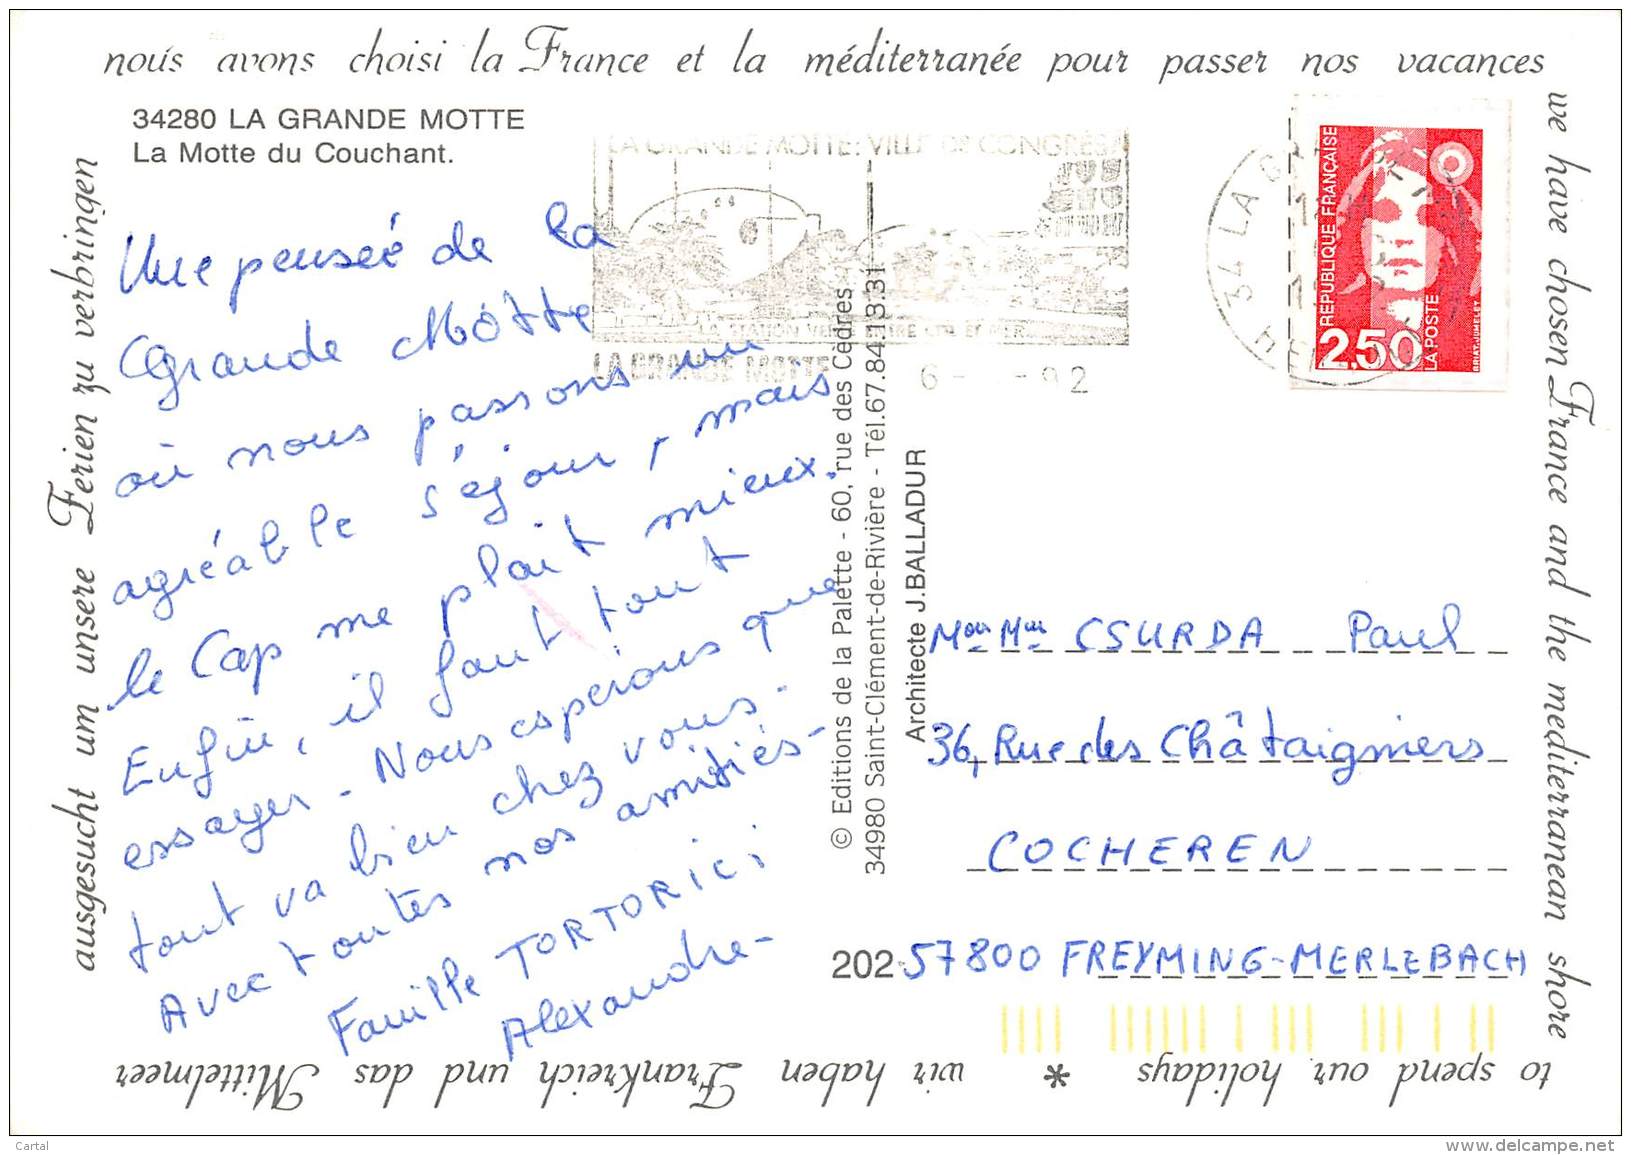 nous avons choisi la France et la méditerranée pour passer nos vacances
we have chosen France and the mediterranean shore
to spend our holidays * wir haben Frankreich und das Mittelmeer
ausgesucht um unsere Ferien zu verbringen
34280 LA GRANDE MOTTE
La Motte du Couchant.
LA GRANDE MOTTE: VILLE DE CONGRÈS
LA STATION VERTE ENTRE CIEL ET MER
LA GRANDE MOTTE
6 - -92
34 LA G
HERAU
REPUBLIQUE FRANÇAISE
2,50
LA POSTE
BRIAT.JUMELET
Une pensée de la
Grande Motte
où nous passons un
agréable séjour, mais
le Cap me plait mieux.
Enfin, il faut tout
essayer. Nous esperons que
tout va bien chez vous.
Avec toutes nos amitiés-
Famille TORTORICI
Alexandre-
© Editions de la Palette - 60, rue des Cèdres
34980 Saint-Clément-de-Rivière - Tél.67.84.13.31
Architecte J.BALLADUR
Mr Mme CSURDA Paul
36, Rue des Châtaigniers
COCHEREN
202
57800 FREYMING-MERLEBACH
Cartal
www.delcampe.net